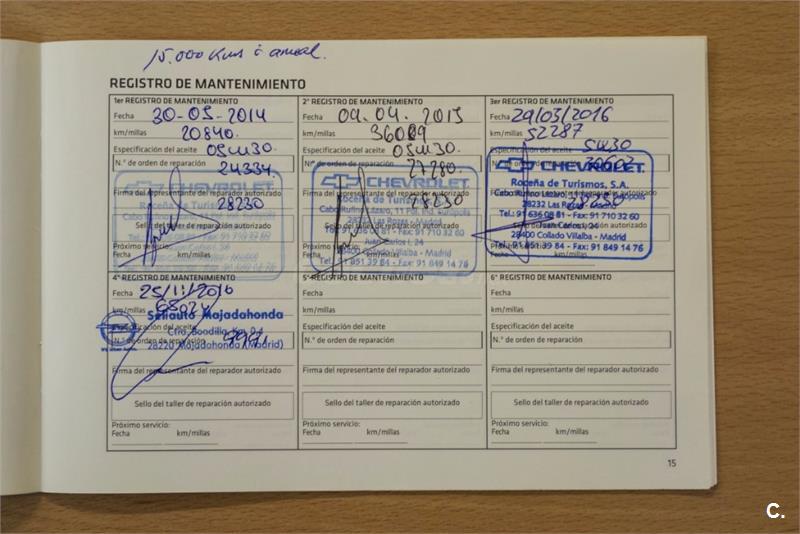 15.000 Kms ó anual.
REGISTRO DE MANTENIMIENTO
1er REGISTRO DE MANTENIMIENTO
Fecha 30-05-2014
km/millas 20840.
Especificación del aceite 05W30.
N.° de orden de reparación 24334.
Firma del representante del reparador autorizado 28230
CHEVROLET
Roceña de Turismos
Sello del taller de reparación autorizado
Próximo servicio:
Fecha km/millas
2° REGISTRO DE MANTENIMIENTO
Fecha 09.04.2015
km/millas 36009
Especificación del aceite 05W30.
N.° de orden de reparación 27280.
Firma del representante del reparador autorizado 28230
CHEVROLET
Roceña de Turismos
Cabo Rufino Lázaro, 11 Pol. Ind. Európolis
28232 Las Rozas - Madrid
Tel.: 91 636 08 81 - Fax: 91 710 32 60
Juan Carlos I, 24
Collado Villalba - Madrid
Tel.: 91 851 39 84 - Fax: 91 849 14 76
Sello del taller de reparación autorizado
Próximo servicio:
Fecha km/millas
3er REGISTRO DE MANTENIMIENTO
Fecha 29/03/2016
km/millas 52287
Especificación del aceite 5W30
N.° de orden de reparación 30602
CHEVROLET
Roceña de Turismos, S.A.
Cabo Rufino Lázaro, Európolis
28232 Las Rozas - Madrid 28230
Tel.: 91 636 08 81 - Fax: 91 710 32 60
Juan Carlos I, 24
28400 Collado Villalba - Madrid
Tel.: 91 851 39 84 - Fax: 91 849 14 76
4° REGISTRO DE MANTENIMIENTO
Fecha 25/11/2016
km/millas
Sellauto Majadahonda
Especificación del aceite
Ctra. Boadilla, Km. 0,4
N.° de orden de reparación
28220 Majadahonda (Madrid)
Firma del representante del reparador autorizado
Sello del taller de reparación autorizado
Próximo servicio:
Fecha km/millas
5° REGISTRO DE MANTENIMIENTO
Fecha
km/millas
Especificación del aceite
N.° de orden de reparación
Firma del representante del reparador autorizado
Sello del taller de reparación autorizado
Próximo servicio:
Fecha km/millas
6° REGISTRO DE MANTENIMIENTO
Fecha
km/millas
Especificación del aceite
N.° de orden de reparación
Firma del representante del reparador autorizado
Sello del taller de reparación autorizado
Próximo servicio:
Fecha km/millas
15
C.